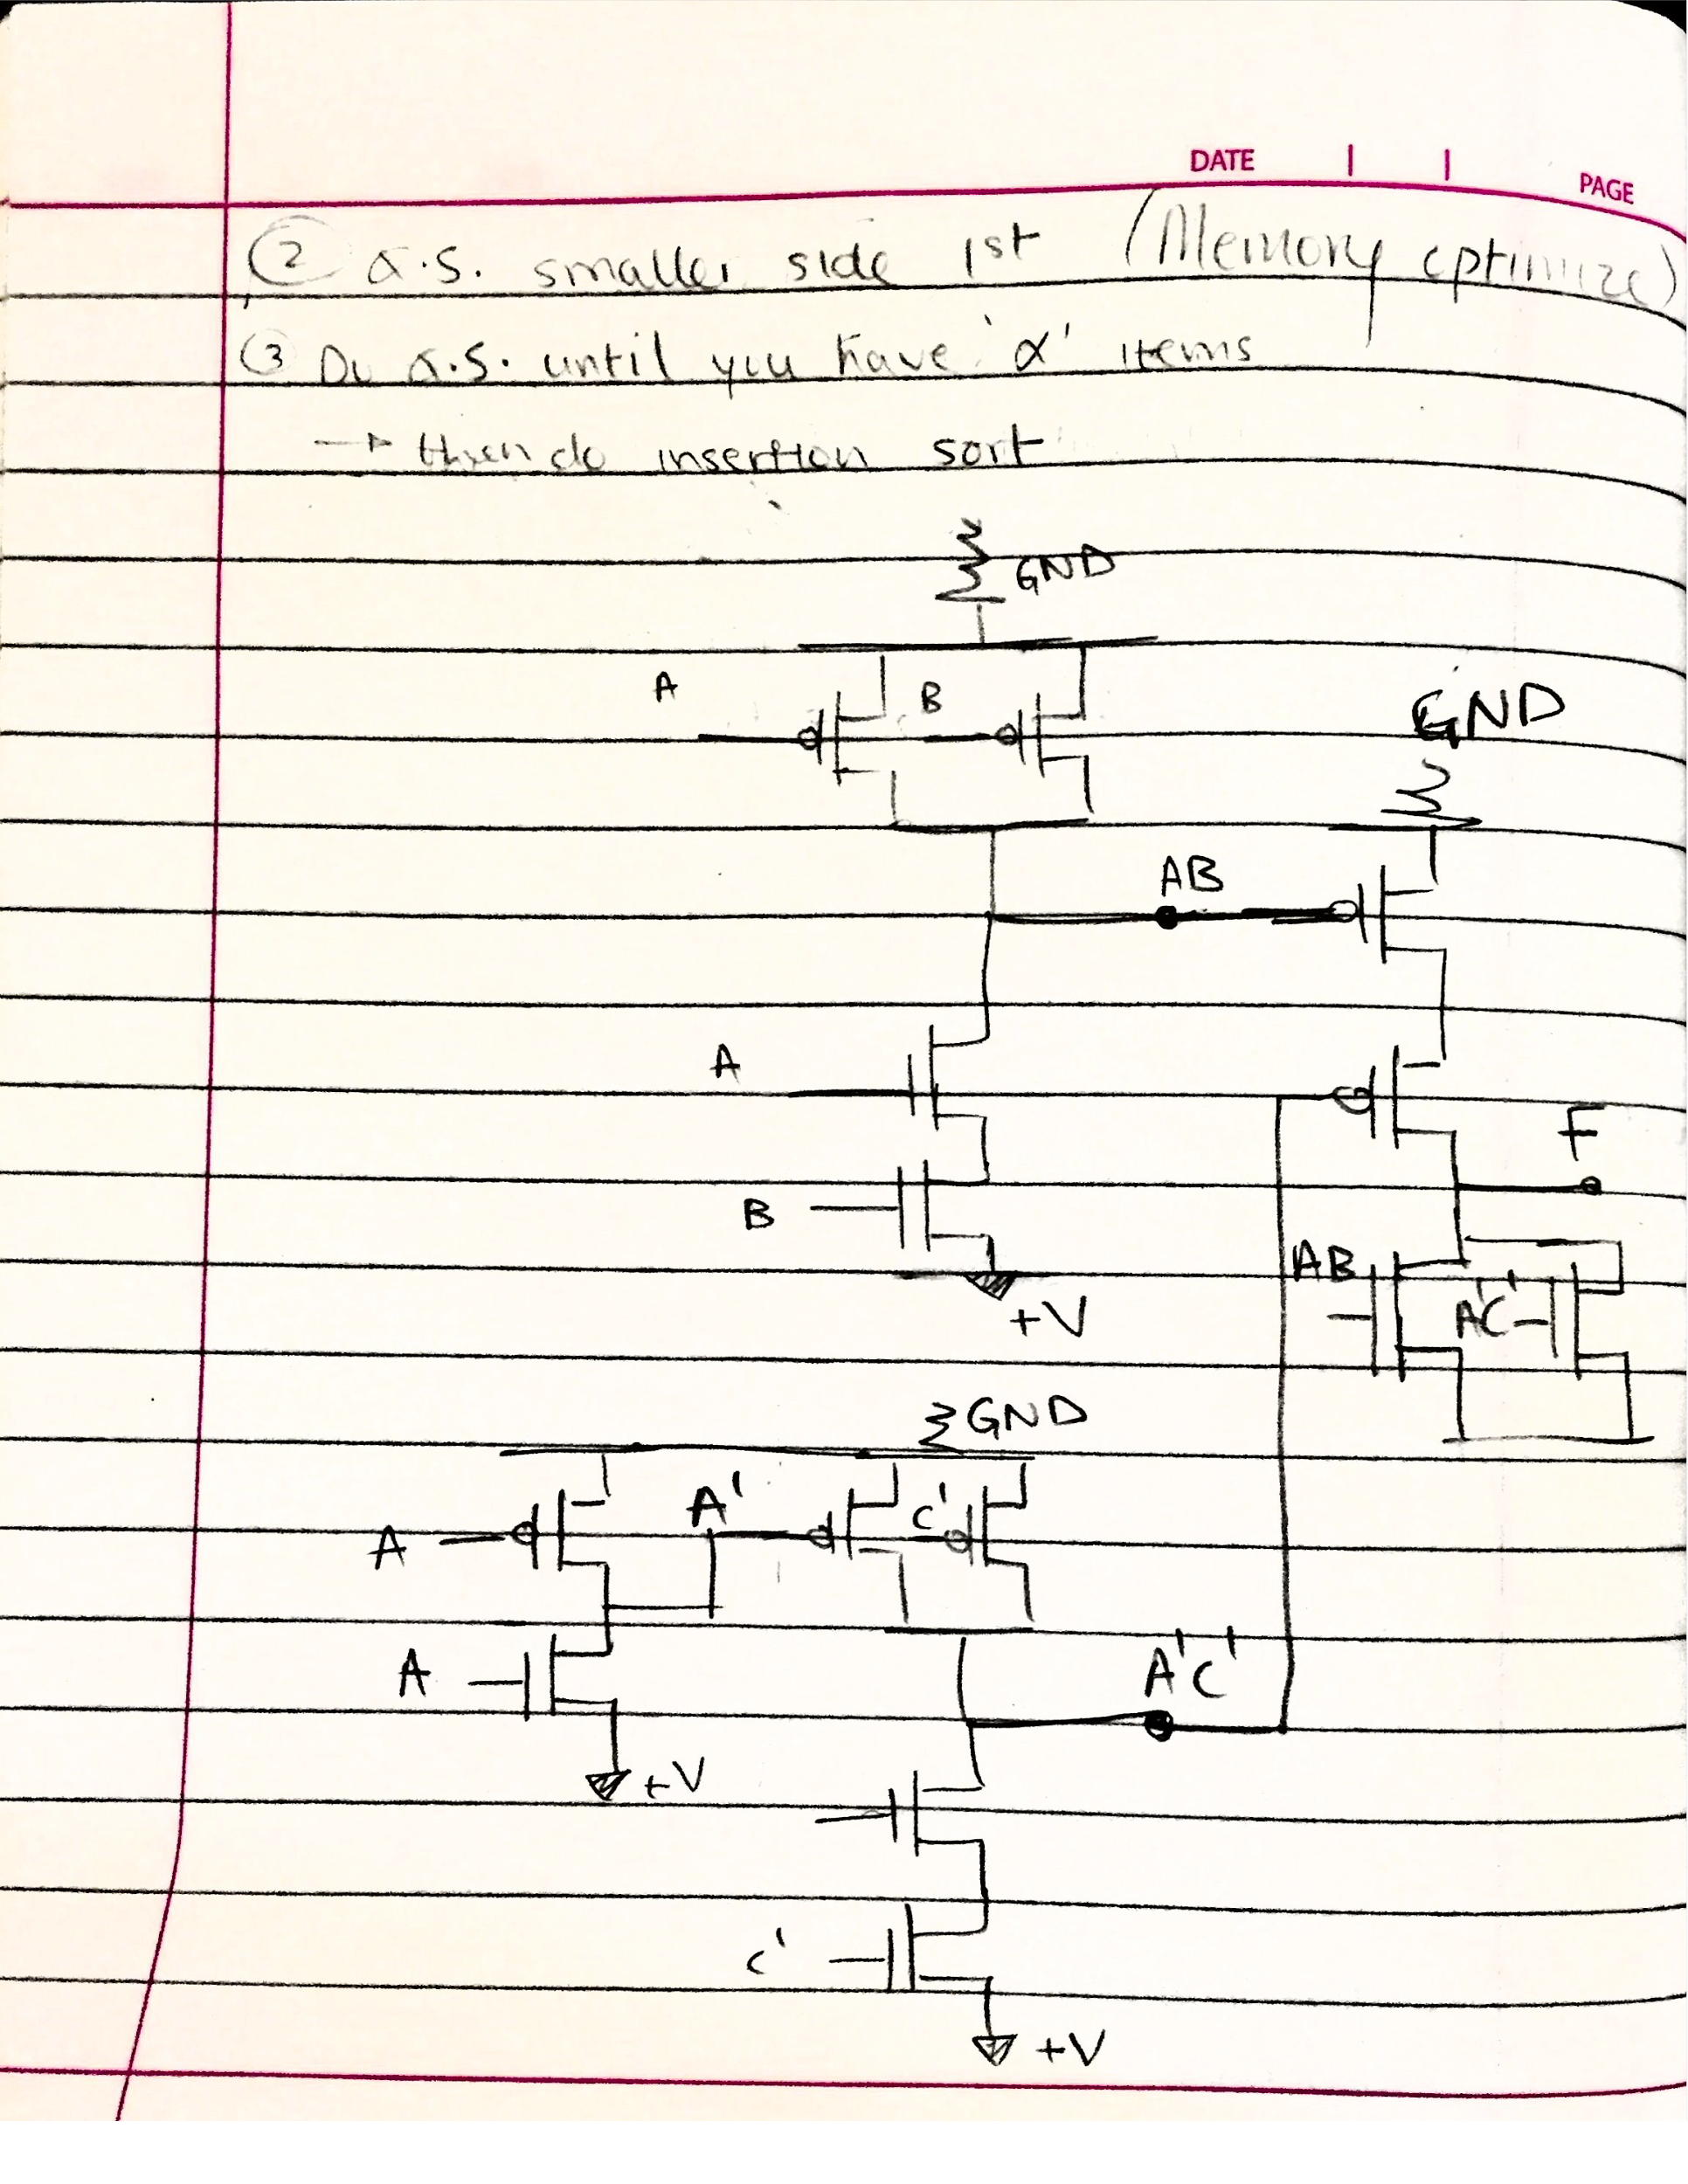 DATE
PAGE
② Q.S. smaller side 1st (Memory optimize)
③ Do Q.S. until you have 'α' items
→ then do insertion sort
GND
A B
GND
AB
A
F
B
AB A'C'
+V
GND
A' C'
A
A
A'C'
+V
C'
+V